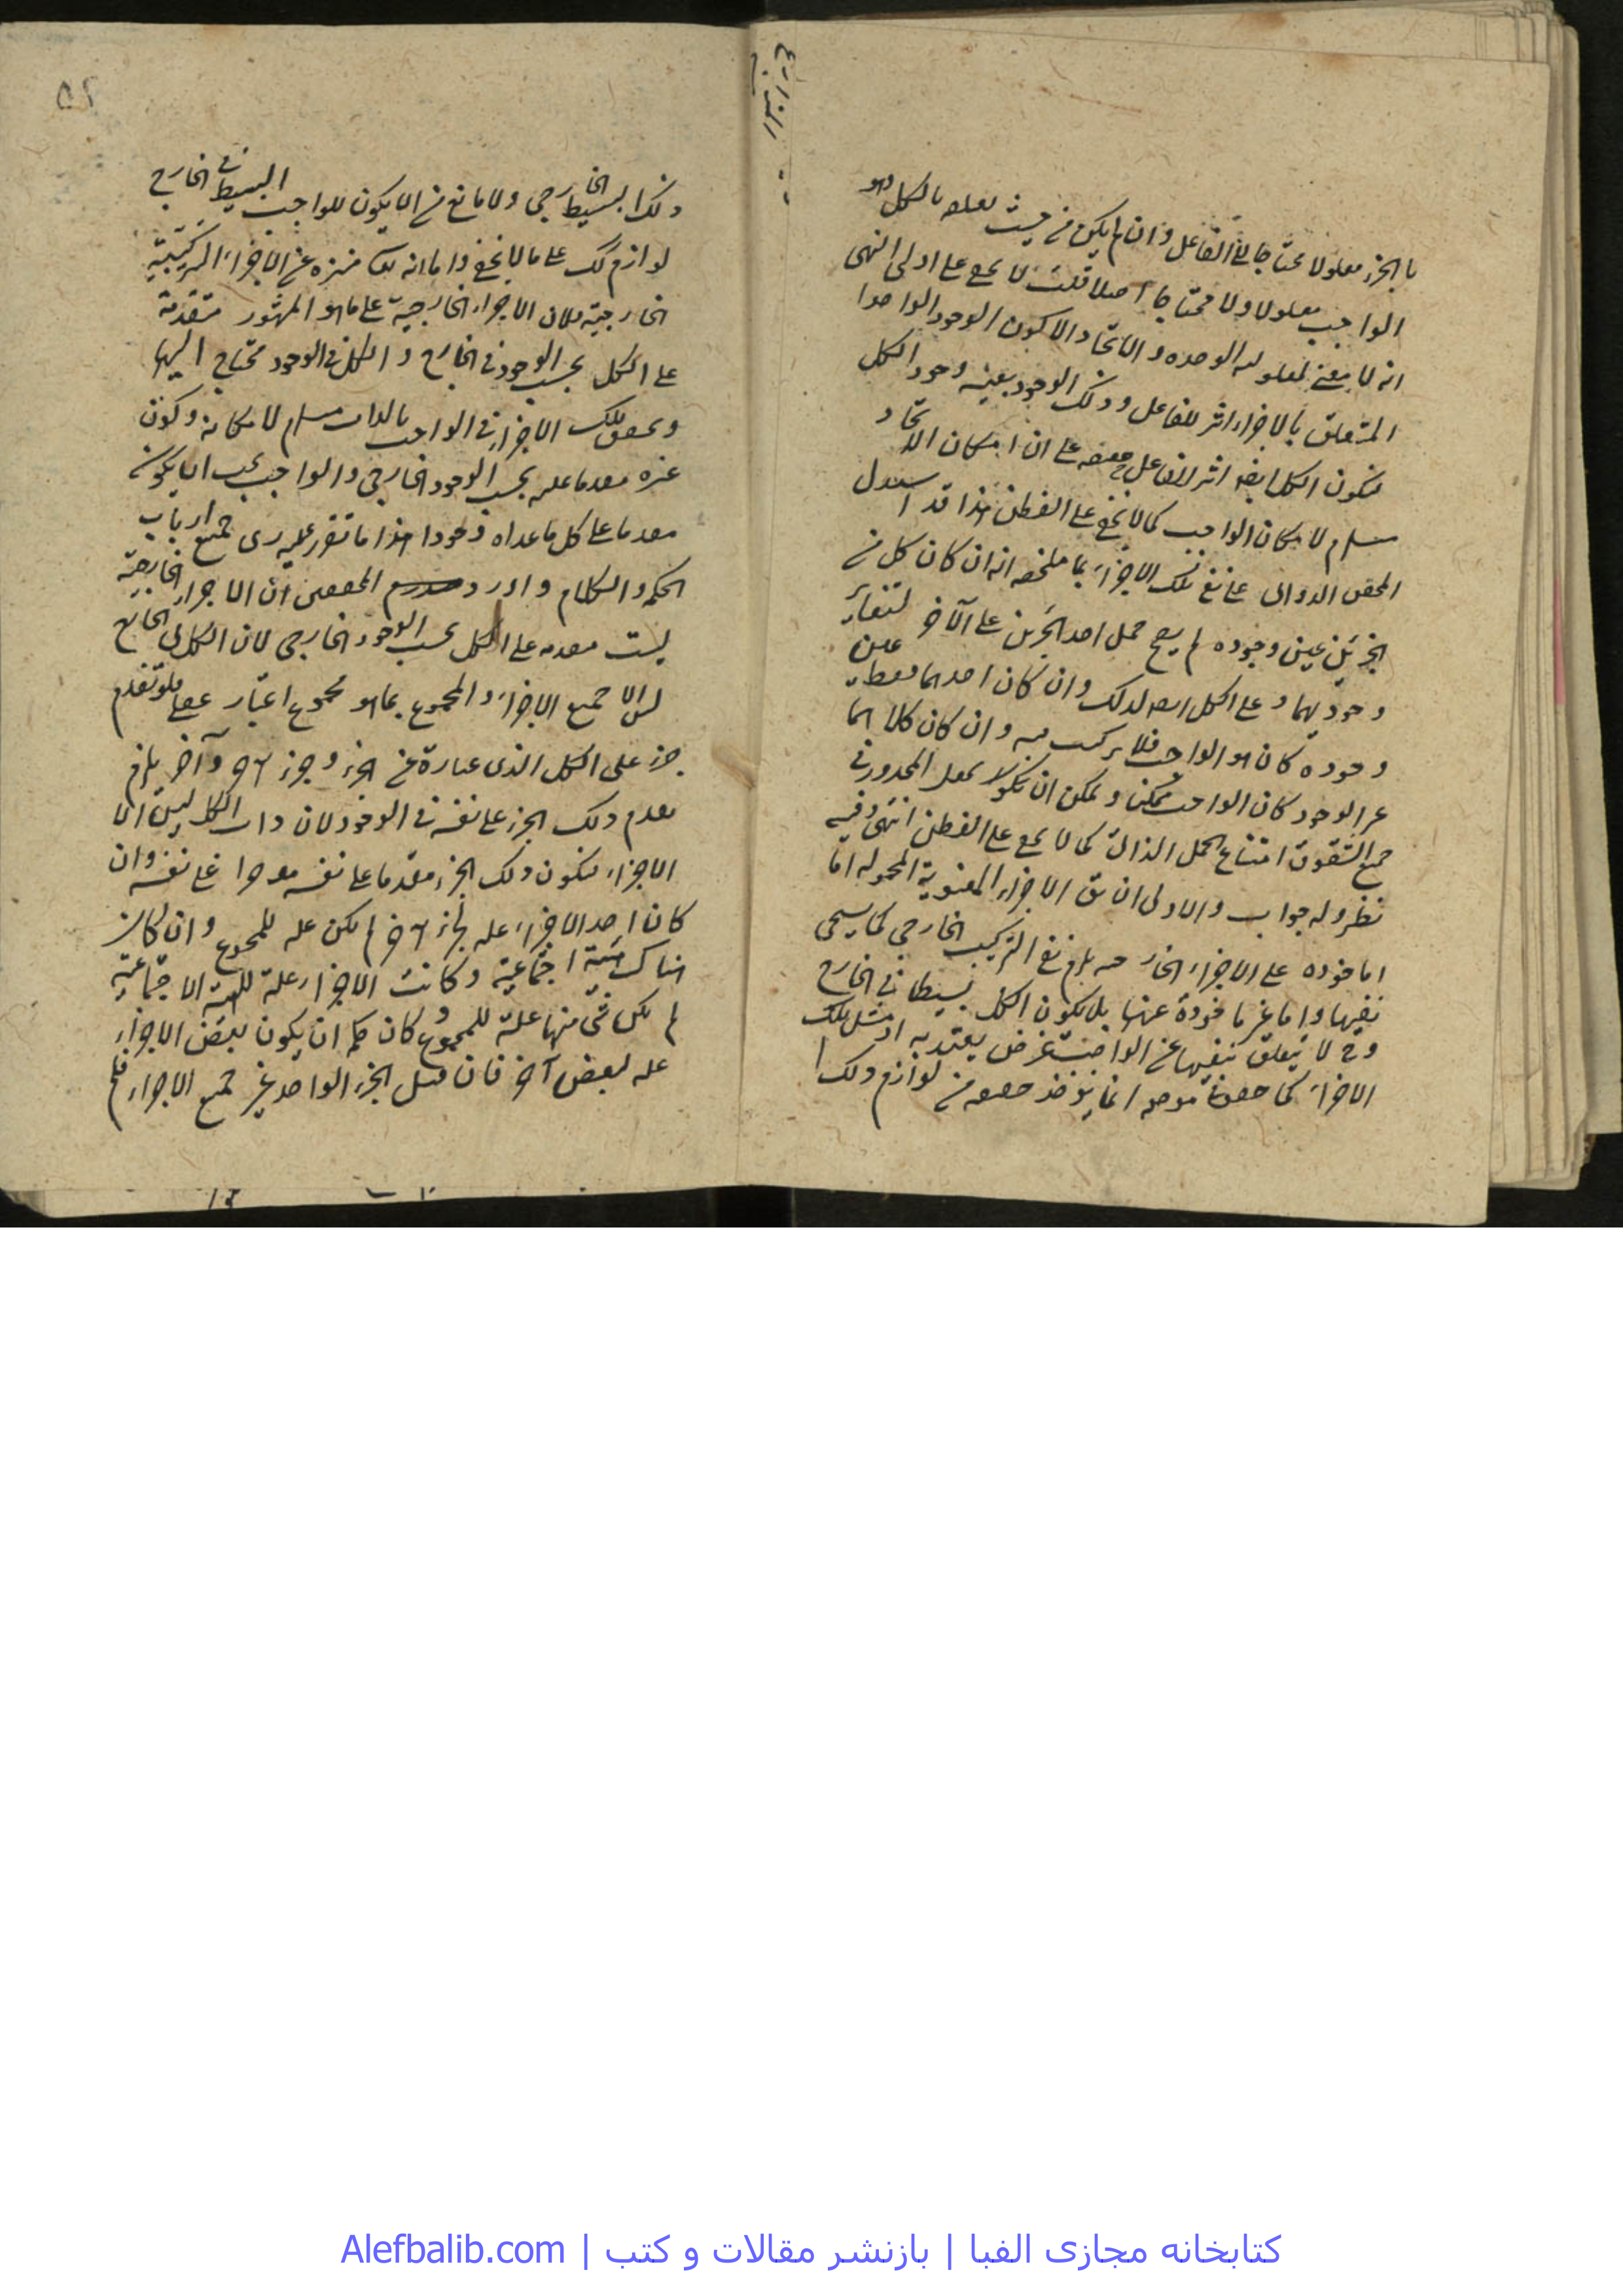 ما الجزء معلولا محتاجا الى الفاعل وان لم يكن من حيث بالكل وهو
الواجب معلولا ولا محتاجا اصلا قلت لا على اولى النهى
انه لا معنى الوحدة والاتحاد الا كون الوجود الواحد
المتعلق بالاجزاء اثر للفاعل وذلك الوجود بعينه وجود الكل
فيكون الكل ايضا اثر للفاعل على ان امكان الاتحاد
مستلزم لامكان الواجب كما لا يخفى على الفطن هذا قد استدل
المحقق الدوانى على نفى تلك الاجزاء بما ملخصه انه ان كان كل من
الجزئين عين وجوده لم يصح حمل احد الجزئين على الآخر لتغاير
وجوديهما وعلى الكل ايضا لذلك وان كان احدهما فقط عين
وجوده كان هو الواجب فلا تركيب فيه وان كان كلاهما
غير الوجود كان الواجب ممكنا ويمكن ان المحذور فى
جميع الشقوق امتناع الحمل الذاتى كما لا يخفى على الفطن انتهى وفيه
نظر وله جواب والاولى ان يق الاجزاء المعنوية المحمولة اما
ماخوذة على الاجزاء نفى التركيب الخارجى كما سيجى
نفيها واما غير ماخوذة عنها بل يكون الكل بسيطا فى الخارج
وح لا يتعلق بنفيها عن الواجب غرض يعتد به اذ مثل تلك
الاجزاء كما انما يؤخذ من لوازم ذلك ا
٥٢
ذلك البسيط الخارجى ولا مانع من ان لا يكون للواجب البسيط فى الخارج
لوازم كك على ما لا يخفى واما انه منزه عن الاجزاء التركيبية
الخارجية فلان الاجزاء الخارجية على ما هو المشهور متقدمة
على الكل بحسب الوجود فى الخارج والكل فى الوجود محتاج اليها
وتحقق تلك الاجزاء فى الواجب بالذات مستلزم لامكانه وكون
غيره مقدما عليه بحسب الوجود الخارجى والواجب يجب ان يكون
مقدما على كل ما عداه وجودا هذا ما تقرر عليه رى جميع ارباب
الحكمة والكلام واورد المحققين ان الاجزاء الخارجية
ليست مقدمة على الكل بحسب الوجود الخارجى لان الكل فى الخارج
ليس الا جميع الاجزاء والمجموع بما هو مجموع اعتبار عقلى فلو تقدم
جزء على الكل الذى عبارة عن الجزء وجزء آخر وآخر يلزم
تقدم ذلك الجزء على نفسه فى الوجود لان ذات الكل ليس الا
الاجزاء فيكون ذلك الجزء مقدما على نفسه على نفسه وان
كان احد الاجزاء علة لجزء آخر لم يكن علة للمجموع وان كان
هناك هيئة اجتماعية وكانت الاجزاء علة للهيئة الاجتماعية
لم يكن شى منها علة للمجموع وكان ان يكون بعض الاجزاء
علة لبعض آخر فان قيل الجزء الواحد غير جميع الاجزاء فلم
کتابخانه مجازی الفبا | بازنشر مقالات و کتب | Alefbalib.com